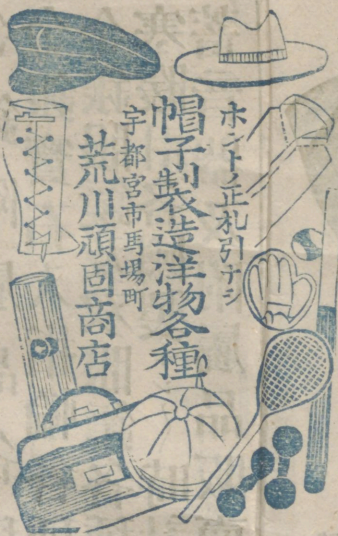 ホントノ正札引ナシ
帽子製造洋物各種
宇都宮市馬場町
荒川頑固商店